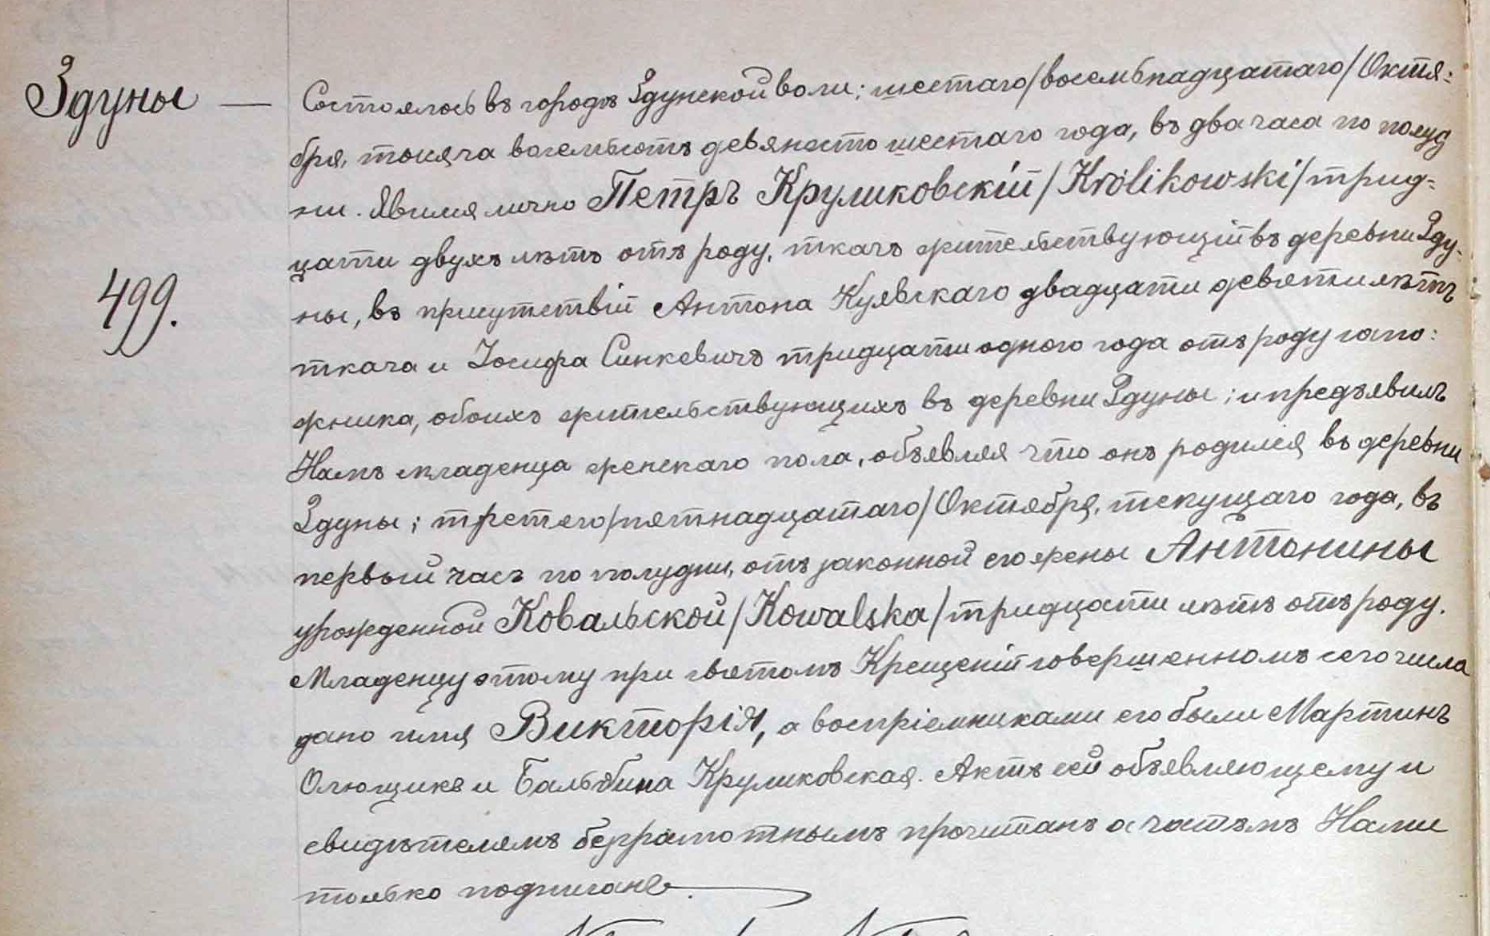 Здуны —
499.
Состоялось въ городѣ Здунской воли; шестаго/восемьнадцатаго/Октя-
бря, тысяча восемьсотъ девяносто шестаго года, въ два часа по полуд
ни. Явился лично Петръ Круликовскій/Królikowski/трид-
цати двухъ лѣтъ отъ роду, ткачъ жительствующій въ деревни Зду-
ны, въ присутствіи Антона Куявскаго двадцати девяти лѣтъ
ткача и Іосифа Синкевичъ тридцати одного года отъ роду сапо-
жника, обоихъ жительствующихъ въ деревни Здуны; и предъявилъ
Намъ младенца женскаго пола, объявляя что онъ родился въ деревни
Здуны; третего/пятнадцатаго/Октября, текущаго года, въ
первый часъ по полудни, отъ законной его жены Антонины
урожденной Ковальской/Kowalska/тридцати лѣтъ отъ роду.
Младенцу этому при святомъ Крещеніи совершенномъ сего числа
дано имя Викторія, а воспріемниками его были Мартинъ
и Бальбина Круликовская. Актъ сей объявляющему и
свидѣтелямъ безграмотнымъ прочитанъ Нами
только подписанъ.